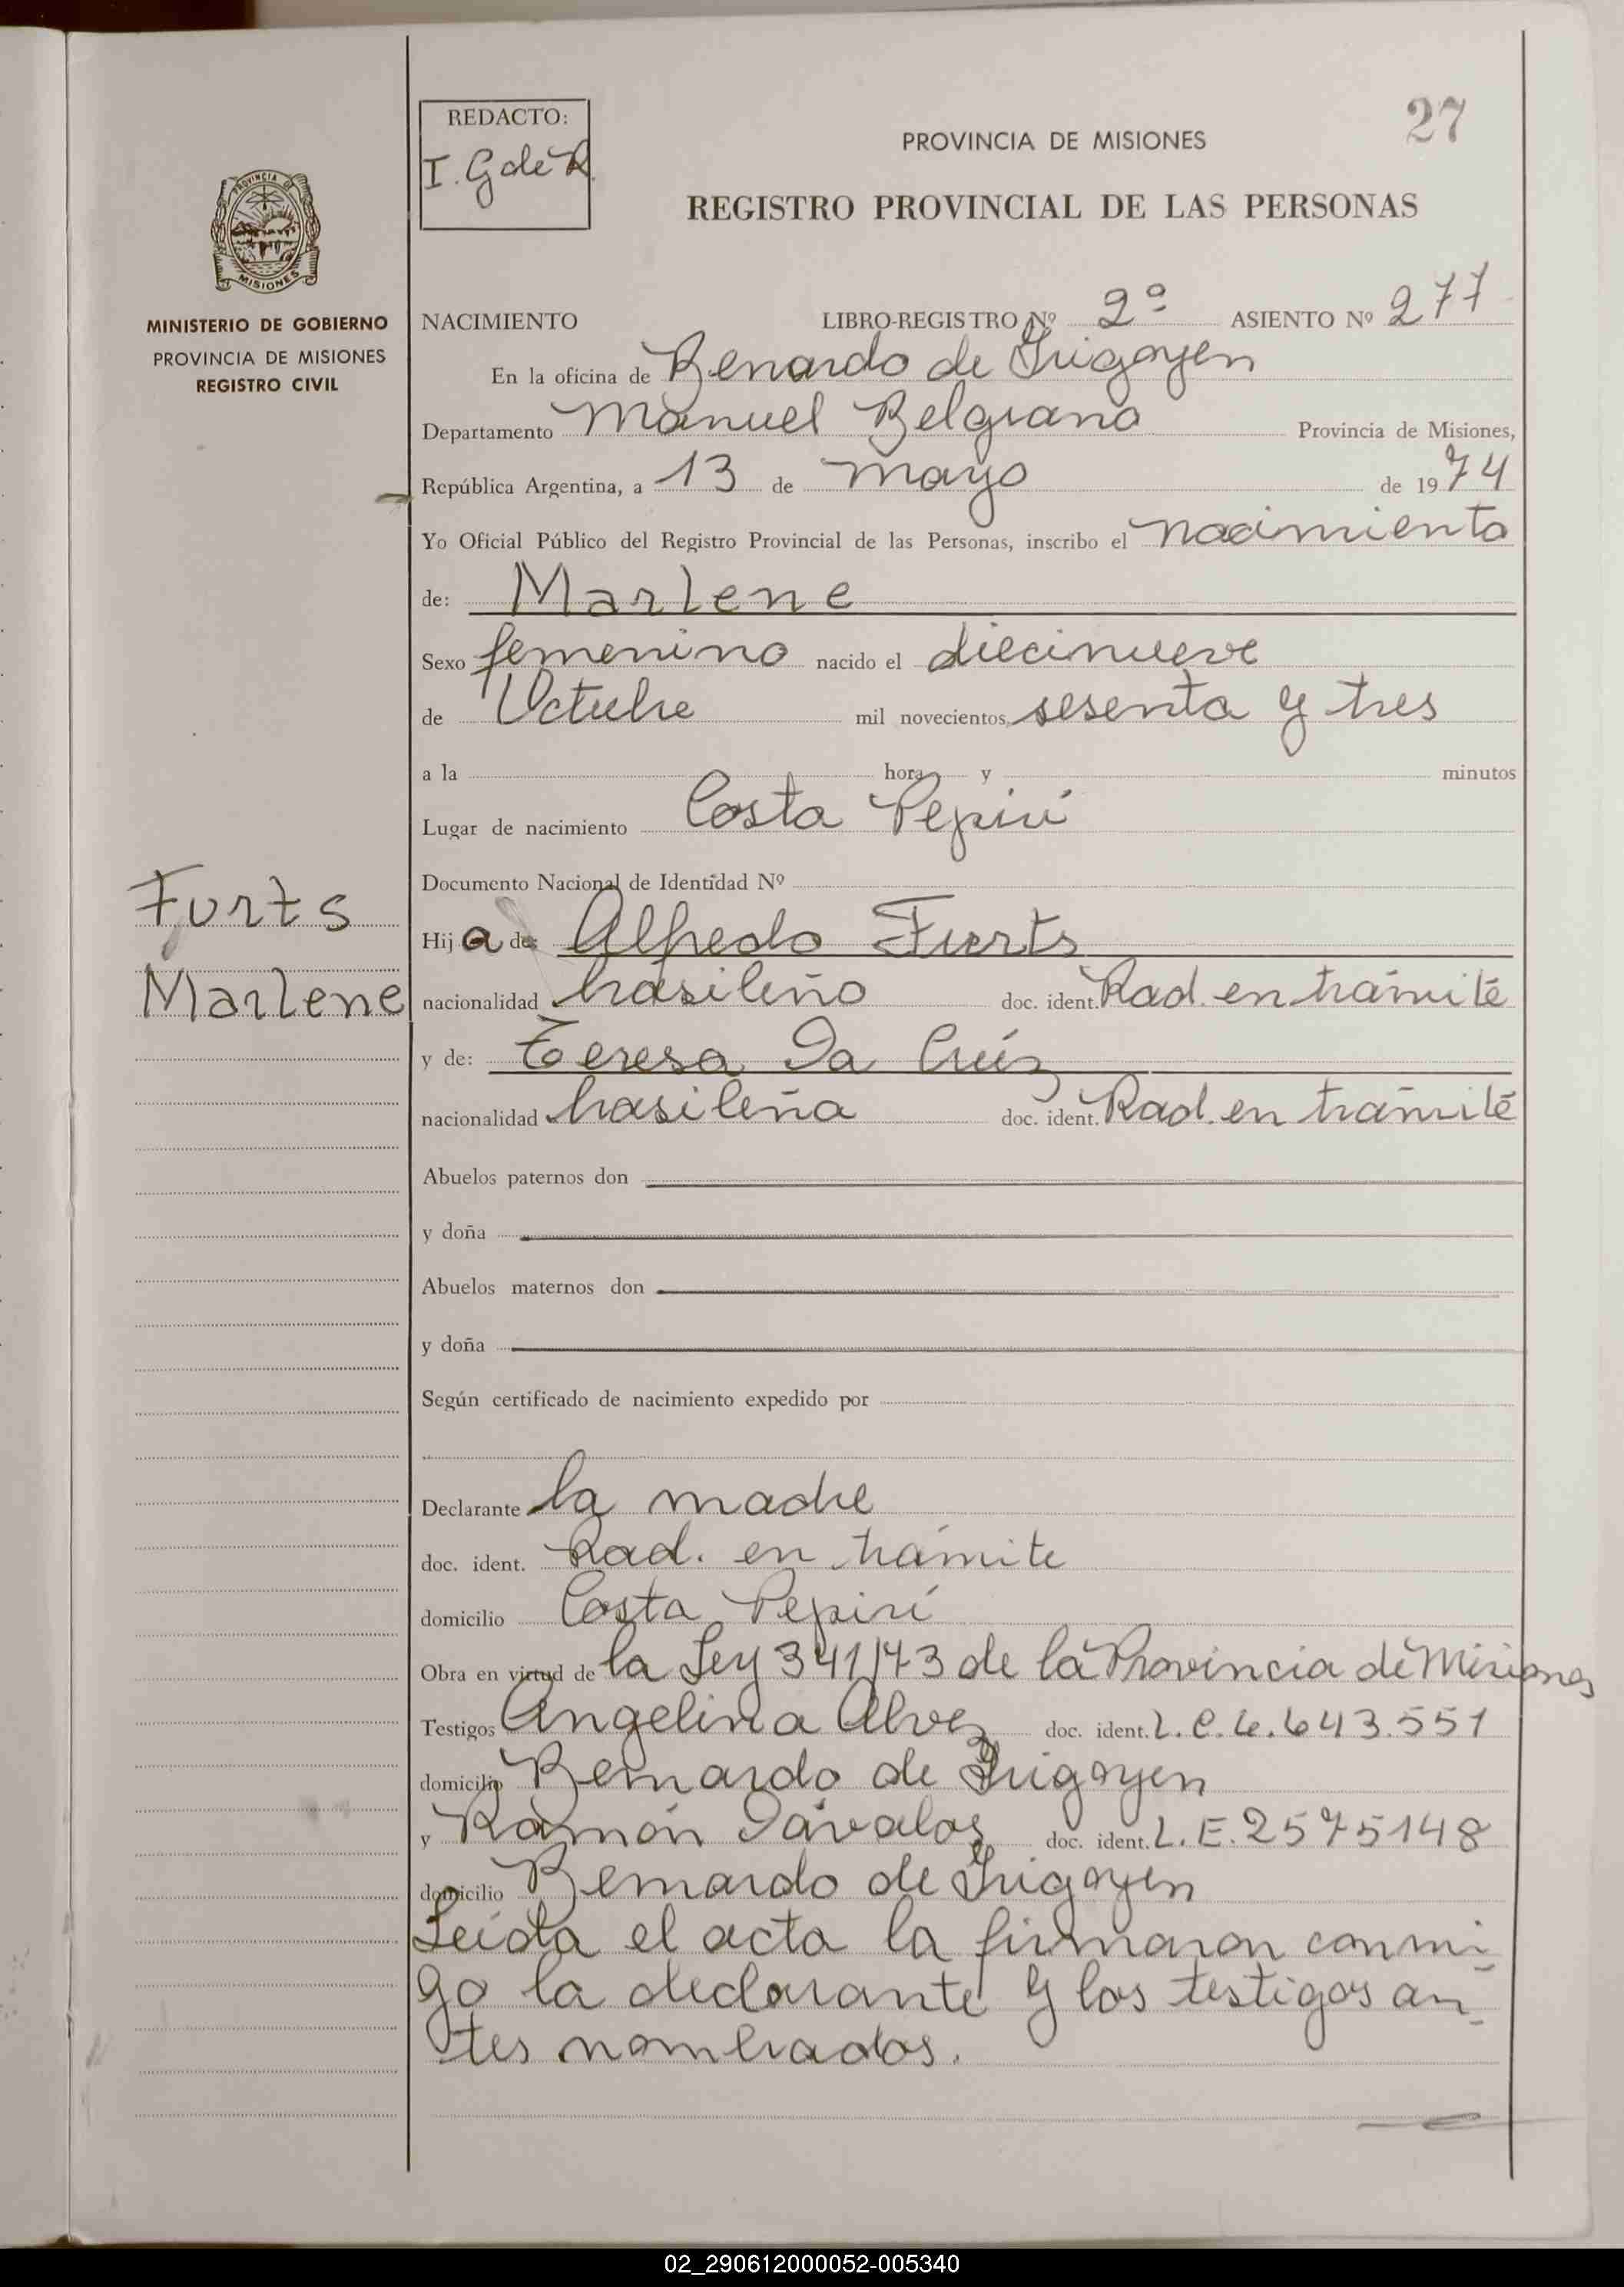 REDACTO:
I. G de R.
27
PROVINCIA DE MISIONES
REGISTRO PROVINCIAL DE LAS PERSONAS
PROVINCIA DE
MISIONES
MINISTERIO DE GOBIERNO
PROVINCIA DE MISIONES
REGISTRO CIVIL
NACIMIENTO LIBRO-REGISTRO Nº 2º ASIENTO Nº 277
En la oficina de Benardo de Irigoyen
Departamento Manuel Belgrano Provincia de Misiones,
República Argentina, a 13 de mayo de 1974
Yo Oficial Público del Registro Provincial de las Personas, inscribo el nacimiento
de: Marlene
Sexo femenino nacido el diecinueve
de Octubre mil novecientos sesenta y tres
a la hora y minutos
Lugar de nacimiento Costa Pepirí
Documento Nacional de Identidad Nº
Furts
Hija de: Alfredo Furts
Marlene
nacionalidad brasileño doc. ident. Rad. en trámite
y de: Teresa Da Crúz
nacionalidad brasileña doc. ident. Rad. en trámite
Abuelos paternos don
y doña
Abuelos maternos don
y doña
Según certificado de nacimiento expedido por
Declarante la madre
doc. ident. Rad. en trámite
domicilio Costa Pepirí
Obra en virtud de la Ley 341/73 de la Provincia de Misiones
Testigos Angelina Alvez doc. ident. L.C.6.643.551
domicilio Bernardo de Irigoyen
y Ramón Dávalos doc. ident. L.E.2575148
domicilio Bernardo de Irigoyen
Leída el acta la firmaron conmi-
go la declarante y los testigos an-
tes nombrados.
02_290612000052-005340